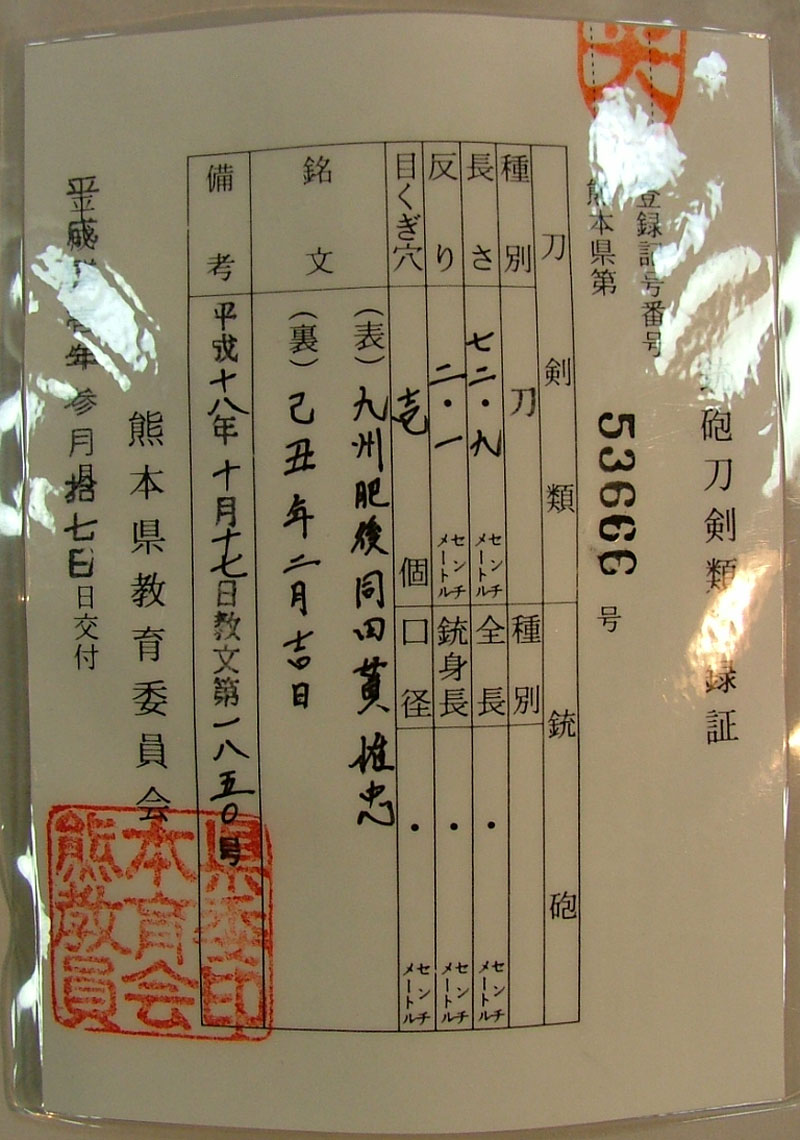 砲刀剣類 録証
登録記号番号
熊本県第 53666 号
刀剣類
種別 刀
長さ 七二・九 センチメートル
反り 二・一 センチメートル
目くぎ穴 壱 個
銃砲
種別
全長 ・ センチメートル
銃身長 ・ センチメートル
口径 ・ センチメートル
銘文
(表)九州肥後同田貫 忠
(裏)己丑年二月吉日
備考
平成十八年十月十七日教文第一八五〇号
熊本県教育委員会
平成 壱年参月拾七日 日交付
県委印
本育会
熊教員